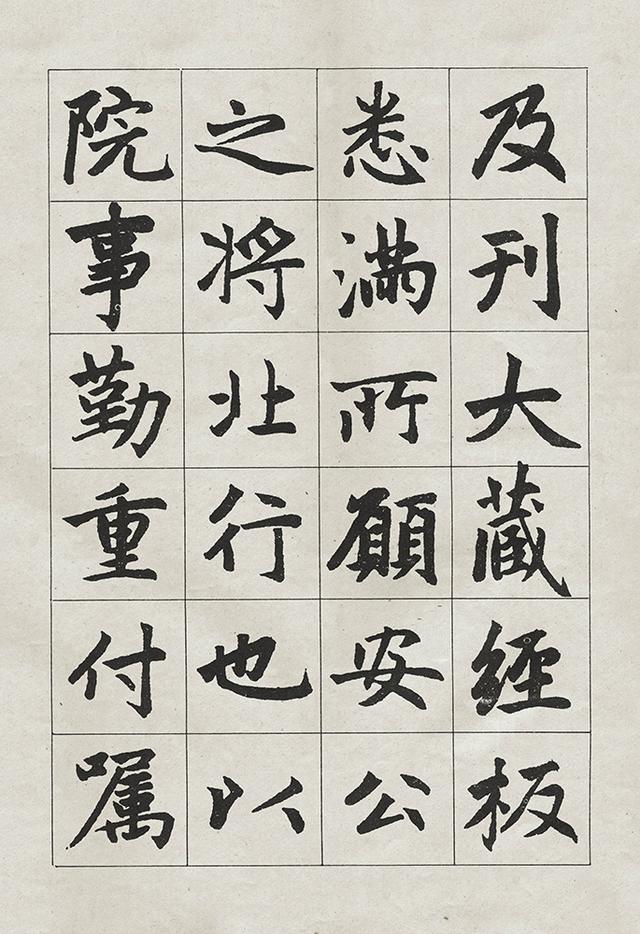 及刊大藏經板
悉满所願安公
之将北行也以
院事勤重付嘱